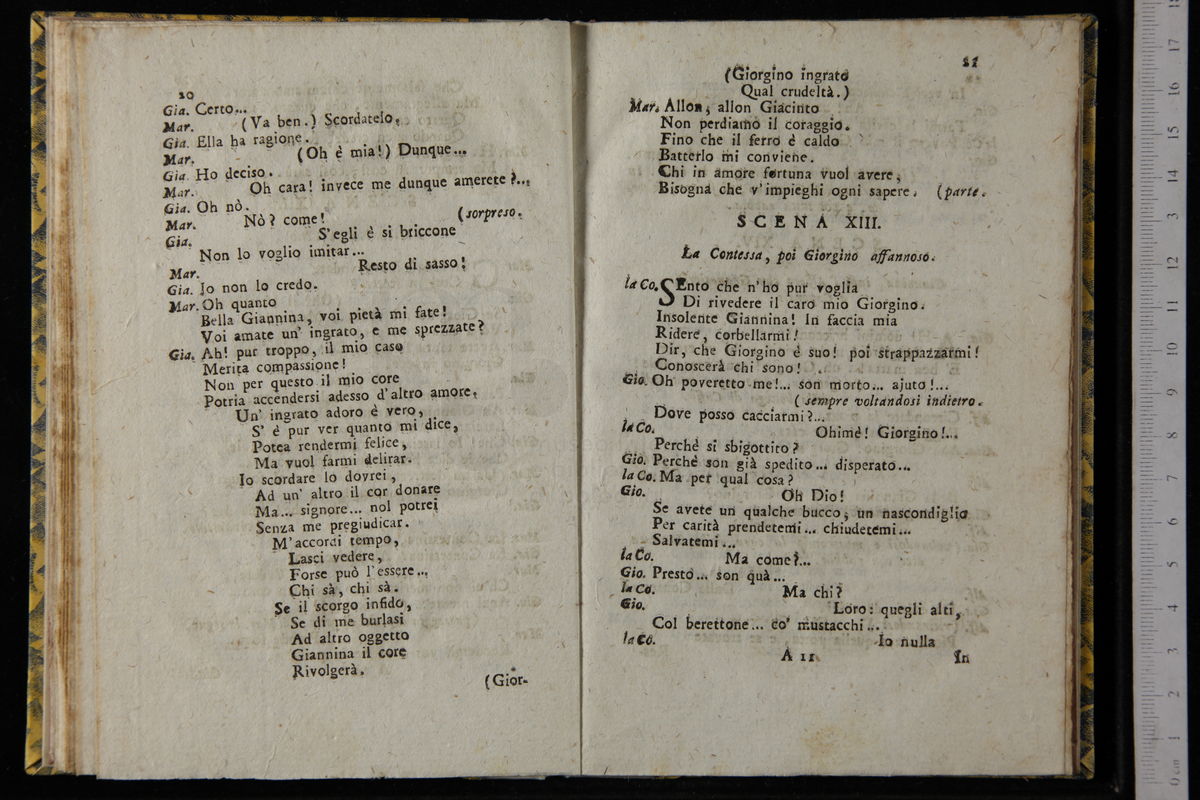 20
Gia. Certo...
Mar. (Va ben.) Scordatelo.
Gia. Ella ha ragione.
Mar. (Oh è mia!) Dunque...
Gia. Ho deciso.
Mar. Oh cara! invece me dunque amerete?...
Gia. Oh nò.
Mar. Nò? come! (sorpreso.
Gia. S'egli è si briccone
Non lo voglio imitar...
Mar. Resto di sasso!
Gia. Io non lo credo.
Mar. Oh quanto
Bella Giannina, voi pietà mi fate!
Voi amate un' ingrato, e me sprezzate?
Gia. Ah! pur troppo, il mio caso
Merita compassione!
Non per questo il mio core
Potria accendersi adesso d'altro amore.
Un' ingrato adoro è vero,
S' è pur ver quanto mi dice,
Potea rendermi felice,
Ma vuol farmi delirar.
Io scordare lo dovrei,
Ad un' altro il cor donare
Ma... signore... nol potrei
Senza me pregiudicar.
M'accordi tempo,
Lasci vedere,
Forse può l'essere...
Chi sà, chi sà.
Se il scorgo infido,
Se di me burlasi
Ad altro oggetto
Giannina il core
Rivolgerà.
(Gior-
21
(Giorgino ingrato
Qual crudeltà.)
Mar. Allon, allon Giacinto
Non perdiamo il coraggio.
Fino che il ferro è caldo
Batterlo mi conviene.
Chi in amore fortuna vuol avere,
Bisogna che v'impieghi ogni sapere. (parte.
SCENA XIII.
La Contessa, poi Giorgino affannoso.
la Co. SEnto che n'ho pur voglia
Di rivedere il caro mio Giorgino.
Insolente Giannina! In faccia mia
Ridere, corbellarmi!
Dir, che Giorgino è suo! poi strappazzarmi!
Conoscerà chi sono!
Gio. Oh poveretto me!... son morto... ajuto!...
(sempre voltandosi indietro.
Dove posso cacciarmi?...
la Co. Ohimè! Giorgino!...
Perchè si sbigottito?
Gio. Perchè son già spedito... disperato...
la Co. Ma per qual cosa?
Gio. Oh Dio!
Se avete un qualche bucco, un nascondiglio
Per carità prendetemi... chiudetemi...
Salvatemi...
la Co. Ma come?...
Gio. Presto... son quà...
la Co. Ma chi?
Gio. Loro: quegli alti,
Col berettone... co' mustacchi...
la Co. Io nulla
A 11 In